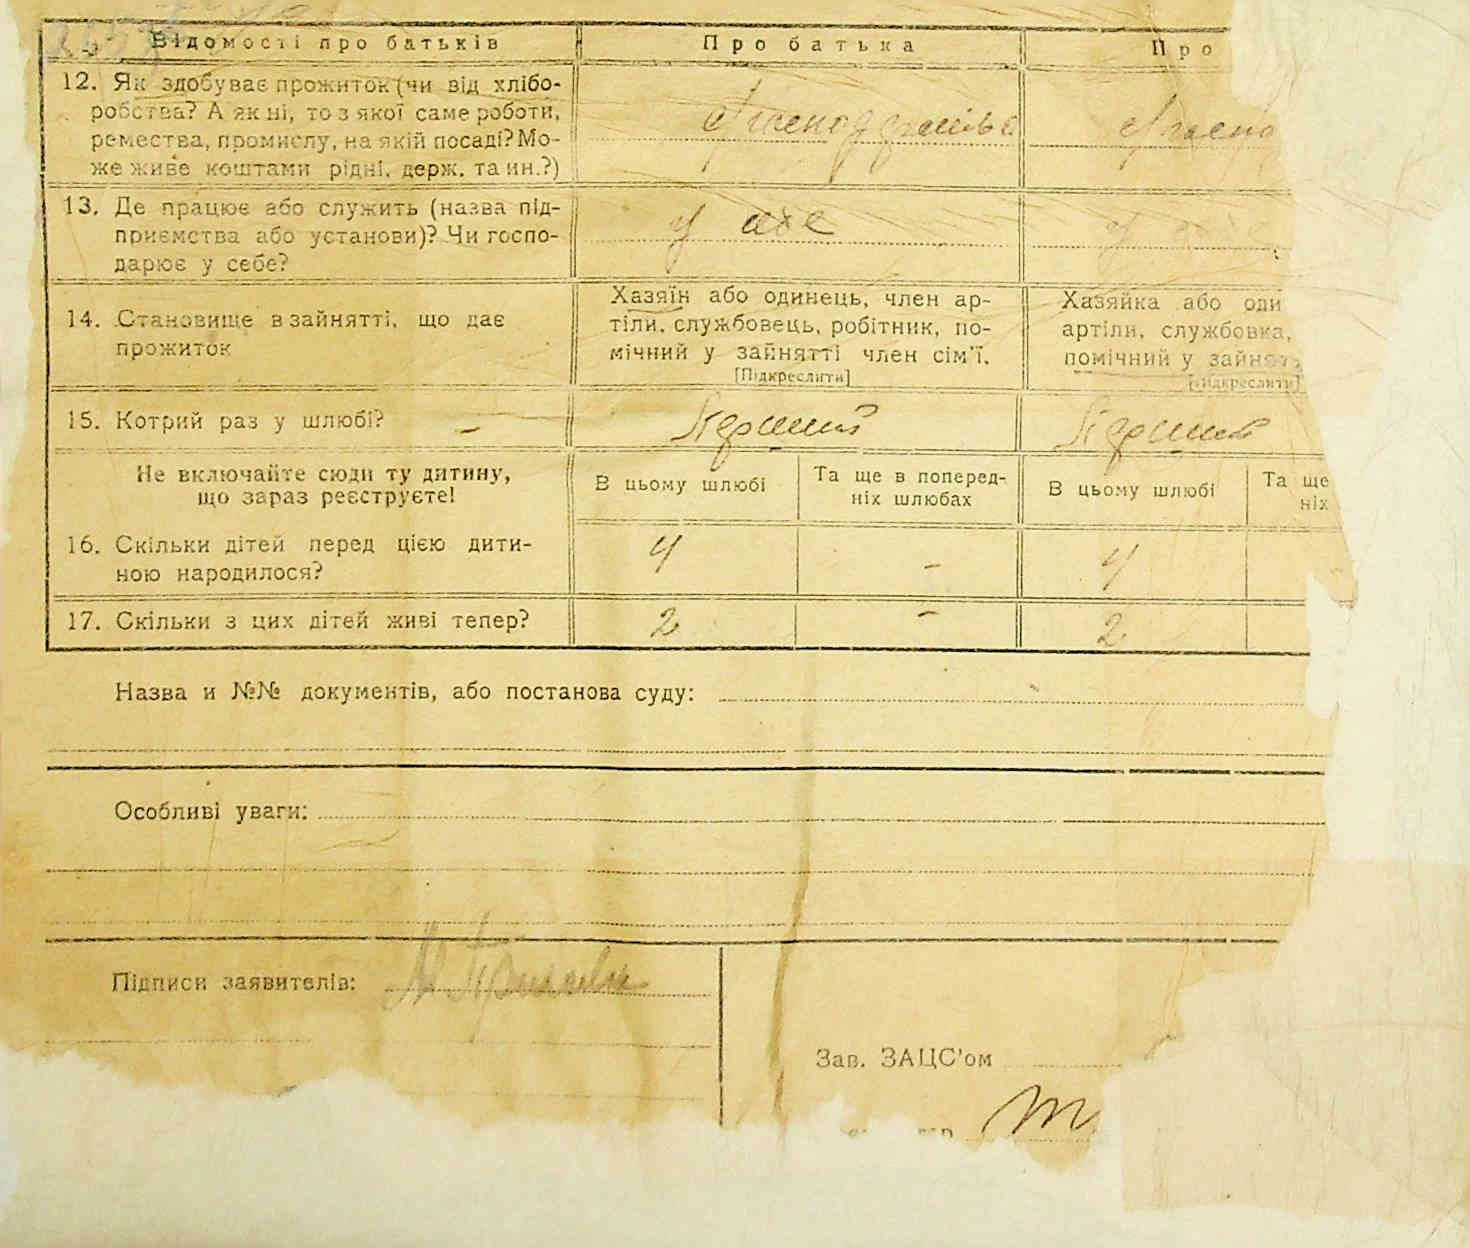 Відомості про батьків
Про батька
Про
12. Як здобуває прожиток (чи від хлібо-
робства? А як ні, то з якої саме роботи,
ремества, промислу, на якій посаді? Мо-
же живе коштами рідні, держ. та ин.?)
13. Де працює або служить (назва під-
приємства або установи)? Чи госпо-
дарює у себе?
у себе
у себе
14. Становище в зайнятті, що дає
прожиток
Хазяїн або одинець, член ар-
тіли, службовець, робітник, по-
мічний у зайнятті член сім'ї.
[Підкреслити]
Хазяйка або оди
артіли, службовка,
помічний у зайнят
[Підкреслити]
15. Котрий раз у шлюбі? –
Перший
Перший
Не включайте сюди ту дитину,
що зараз реєструєте!
В цьому шлюбі
Та ще в поперед-
ніх шлюбах
В цьому шлюбі
Та ще
ніх
16. Скільки дітей перед цією дити-
ною народилося?
4
–
4
17. Скільки з цих дітей живі тепер?
2
–
2
Назва и №№ документів, або постанова суду:
Особливі уваги:
Підписи заявителів:
Зав. ЗАЦС'ом